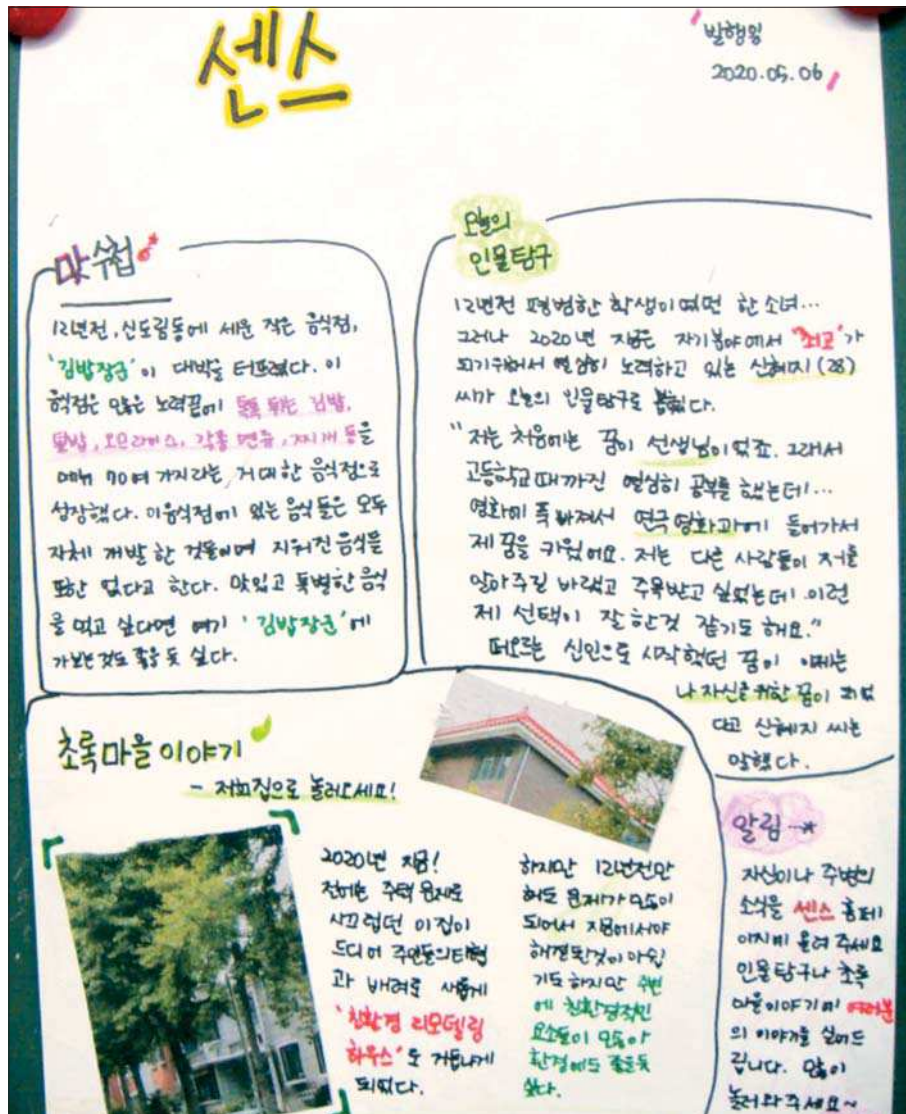 센스
발행일
2020.05.06
맛수첩
12년전, 신도림동에 세운 작은 음식점,
'김밥장군'이 대박을 터뜨렸다. 이
음식점은 많은 노력끝에 톡톡 튀는 김밥,
덮밥, 오므라이스, 각종 면류, 찌개 등을
메뉴 70여 가지라는, 거대한 음식점으로
성장했다. 이음식점에 있는 음식들은 모두
자체 개발 한 것들이며 지워진 음식들
또한 없다고 한다. 맛있고 특별한 음식
을 먹고 싶다면 여기 '김밥장군'에
가보는것도 좋을 듯 싶다.
오늘의
인물탐구
12년전 평범한 학생이였던 한 소녀...
그러나 2020년 지금은 자기분야에서 '최고'가
되기위해서 열심히 노력하고 있는 신혜지(28)
씨가 오늘의 인물탐구로 뽑혔다.
"저는 처음에는 꿈이 선생님이었죠. 그래서
고등학교때까진 열심히 공부를 했는데!...
영화에 푹 빠져서 연극영화과에 들어가서
제 꿈을 키웠어요. 저는 다른 사람들이 저를
알아주길 바랬고 주목받고 싶었는데 이런
제 선택이 잘 한것 같기도 해요."
떠오르는 신인으로 시작했던 꿈이 이제는
나 자신을 위한 꿈이 되었
다고 신혜지 씨는
말했다.
초록마을이야기
- 저희집으로 놀러오세요!
2020년 지금!
전에는 주택 문제로
시끄럽던 이 집이
드디어 주민들의 타협
과 배려로 새롭게
'친환경 리모델링
하우스'로 거듭나게
되었다.
하지만 12년전만
해도 문제가 많이
되어서 지금에서야
해결된것이 아쉽
기도하지만 주변
에 친환경적인
요소들이 많아
환경에도 좋을듯
싶다.
알림
자신이나 주변의
소식을 센스 홈페
이지에 올려 주세요
인물탐구나 초록
마을이야기에 여러분
의 이야기를 실어드
립니다. 많이
놀러와주세요~